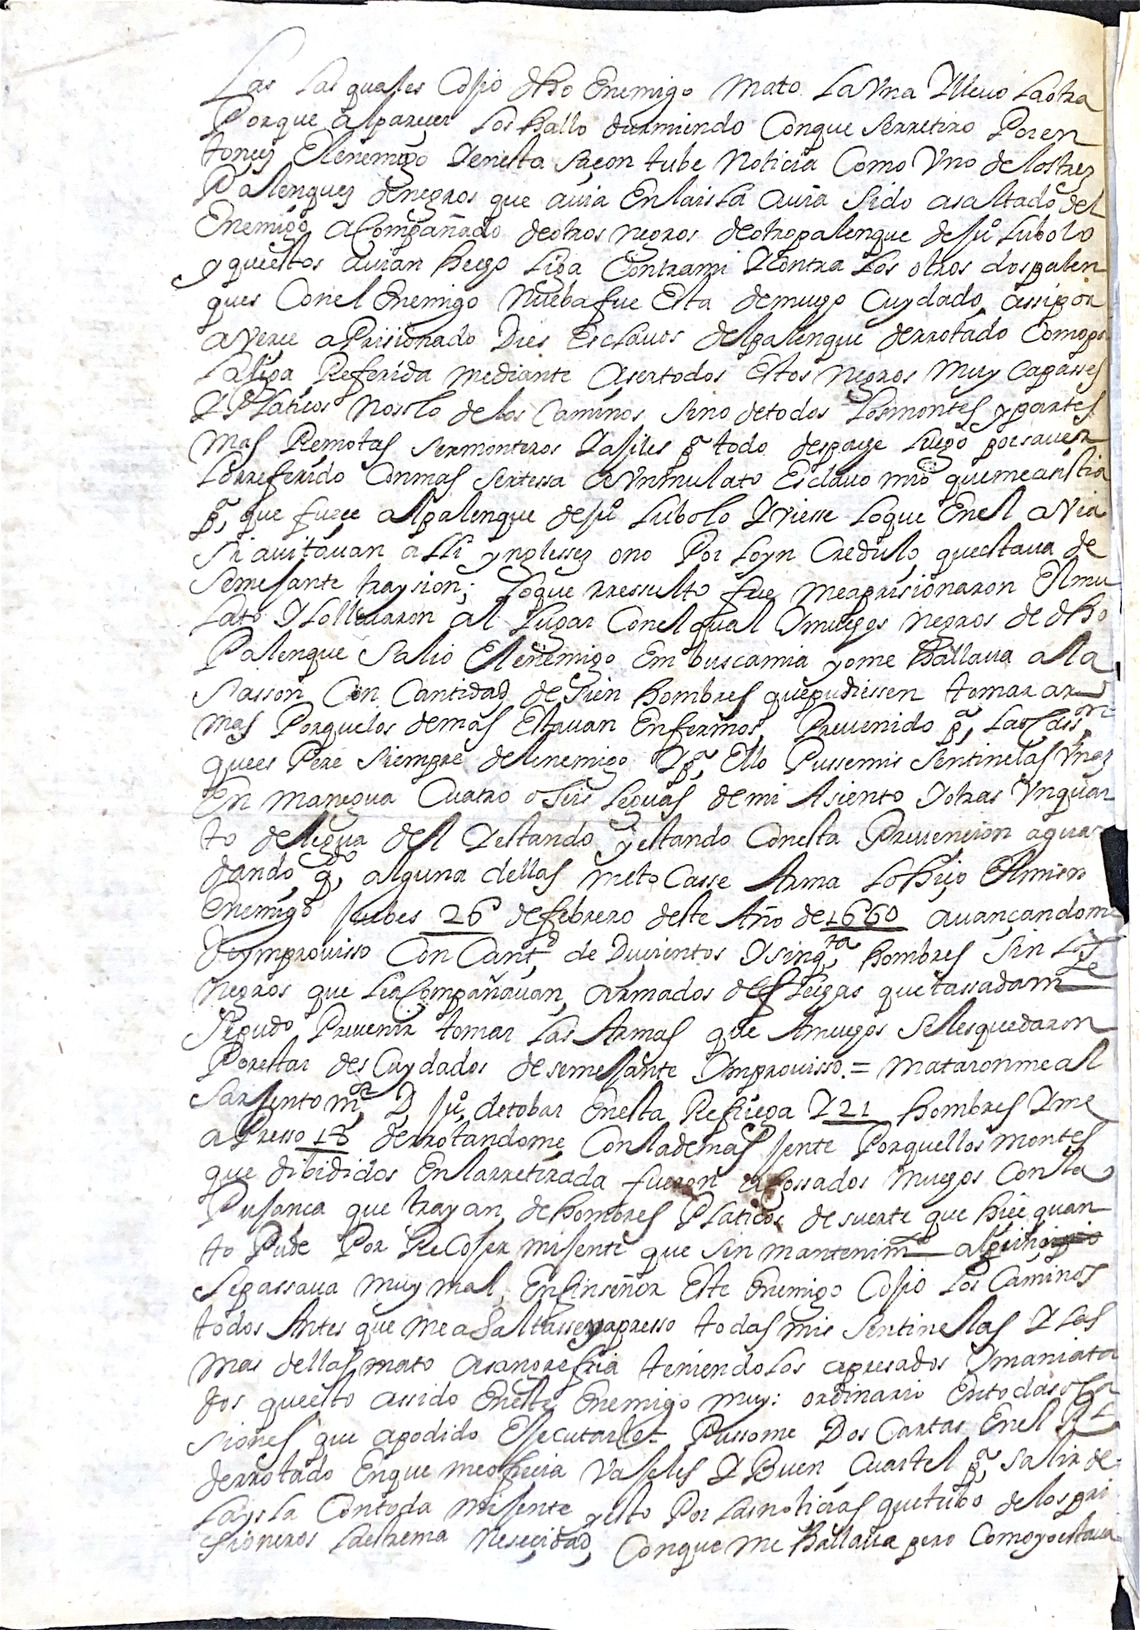 Las Las quales Cojio dho Enemigo Mato La Vna Yllevo Laotra
Porque alpareçer Los hallo durmiendo Conque serretiro Poren
tonçes Elenemigo Yenesta saçon tube Noticia Como Vno delostres
Palenques denegros que avia Enlaisla avia sido asaltado del
Enemigo aCompañado deotros negros deotropalenque deJuº Lubolo
y questos avian hecho Liga Contrami YContra Los otros dospalen
ques Conel Enemigo Nueba fue Esta demucho Cuydado, assi por
averçe aPrisionado Dies Esclavos delpalenque derrotado Comopor
Laliga Referida mediante aser todos Estos Negros Muy Capasses
YPlaticos Nosolo delos Caminos sino detodos Losmontes y partes
Mas Remotas sermonteros Yajiles pª todo despaçhe Luego por saver
Lorreferido Conmas Sertessa a Vnmulato Esclavo mio quemeasistia
pª que fuçe alpalenque deJuº Lubolo Yviesse Loque Enel avia
si avitavan alli ynglesses ono Por Loyn Credulo questava de
semejante traysion; Loque rressulto fue meaprisionaron Elmu
lato YLollevaron al Lugar Conelqual Ymuchos negros de dho
Palenque Salio Elenemigo Em buscamia yome hallava a la
Sasson Con Cantidad de Sien hombres quepudiessen tomar ar
mas Porquelos demas Estavan Enfermos, Prevenido pª Laocasion
quees Pere Siempre delenemigo Ypª Ello Pussemis Sentinelas Vnas
En Manegua Cuatro oseis Leguas demi Asiento Yotras Vnquar
to delegua del Yestando yestando Conesta Prevencion aguar
dando qdo alguna dellas metocasse Arma Lohiço Elmismo
Enemigo Juebes 26 defebrero deste Año de1660 avançandome
deymprovisso Con Cantd de Ducientos Ysinqta hombres sin Los
Negros que Le aCompañavan, armados que tassadamte
sepudo Prevenir tomar Las Armas que Amuchos selesquedaron
Porestar desCuydados desemejante Ymprovisso = mataronmeal
Sarjento mor D Juº detobar Enesta Refriega Y21 hombres Yme
apresso 18 derrotandome Conlademas jente Poraquellos montes
que dibididos Enlarretirada fueron acossados muchos Conla
Pujança que trayan dehombres Platicos desuerte que hiçe quan
to Pude Por ReCojer mijente que sin mantenimto
sepassava muy mal; Enfinseñor Este Enemigo Cojio Los Caminos
todos Antes que measaltasse yapresso todas mis sentinellas YLas
mas dellas mato asangrefria teniendolos apresados Ymaniata
dos questo assido Eneste Enemigo muy: ordinario Entodas oca
siones que apodido Ejecutarlo Pussome Dos Cartas Enel Rl
derrotado Enque meofrecia Vajeles YBuen Cuartel pª salir de
Laysla Contoda mijente yesto Por Lasnoticias quetubo delospri
sioneros Laestrema Neseçidad, Conque me hallava pero Comoyoestava